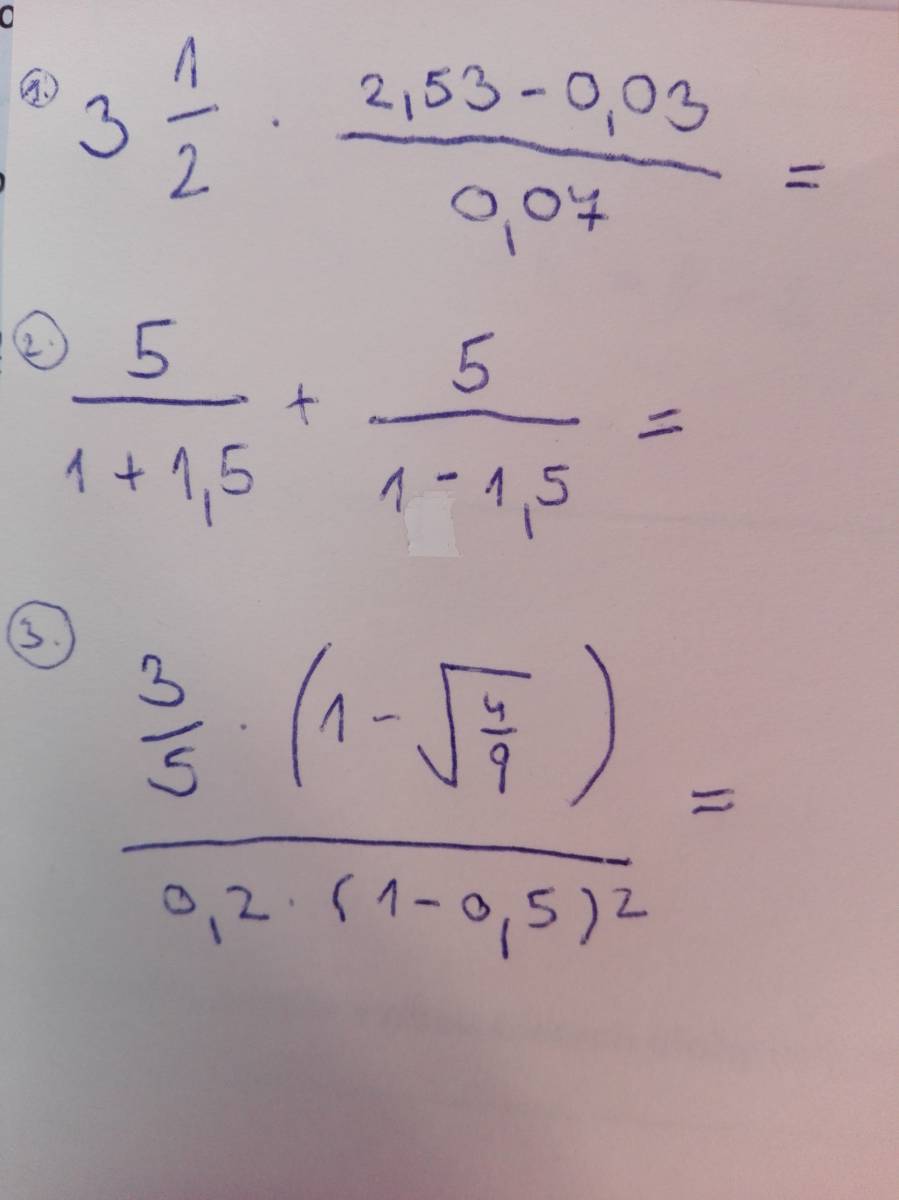 1. 3 1/2 · (2,53 - 0,03)/(0,07) =
2. 5/(1 + 1,5) + 5/(1 - 1,5) =
3. (3/5 · (1 - √(4/9)))/(0,2 · (1 - 0,5)²) =